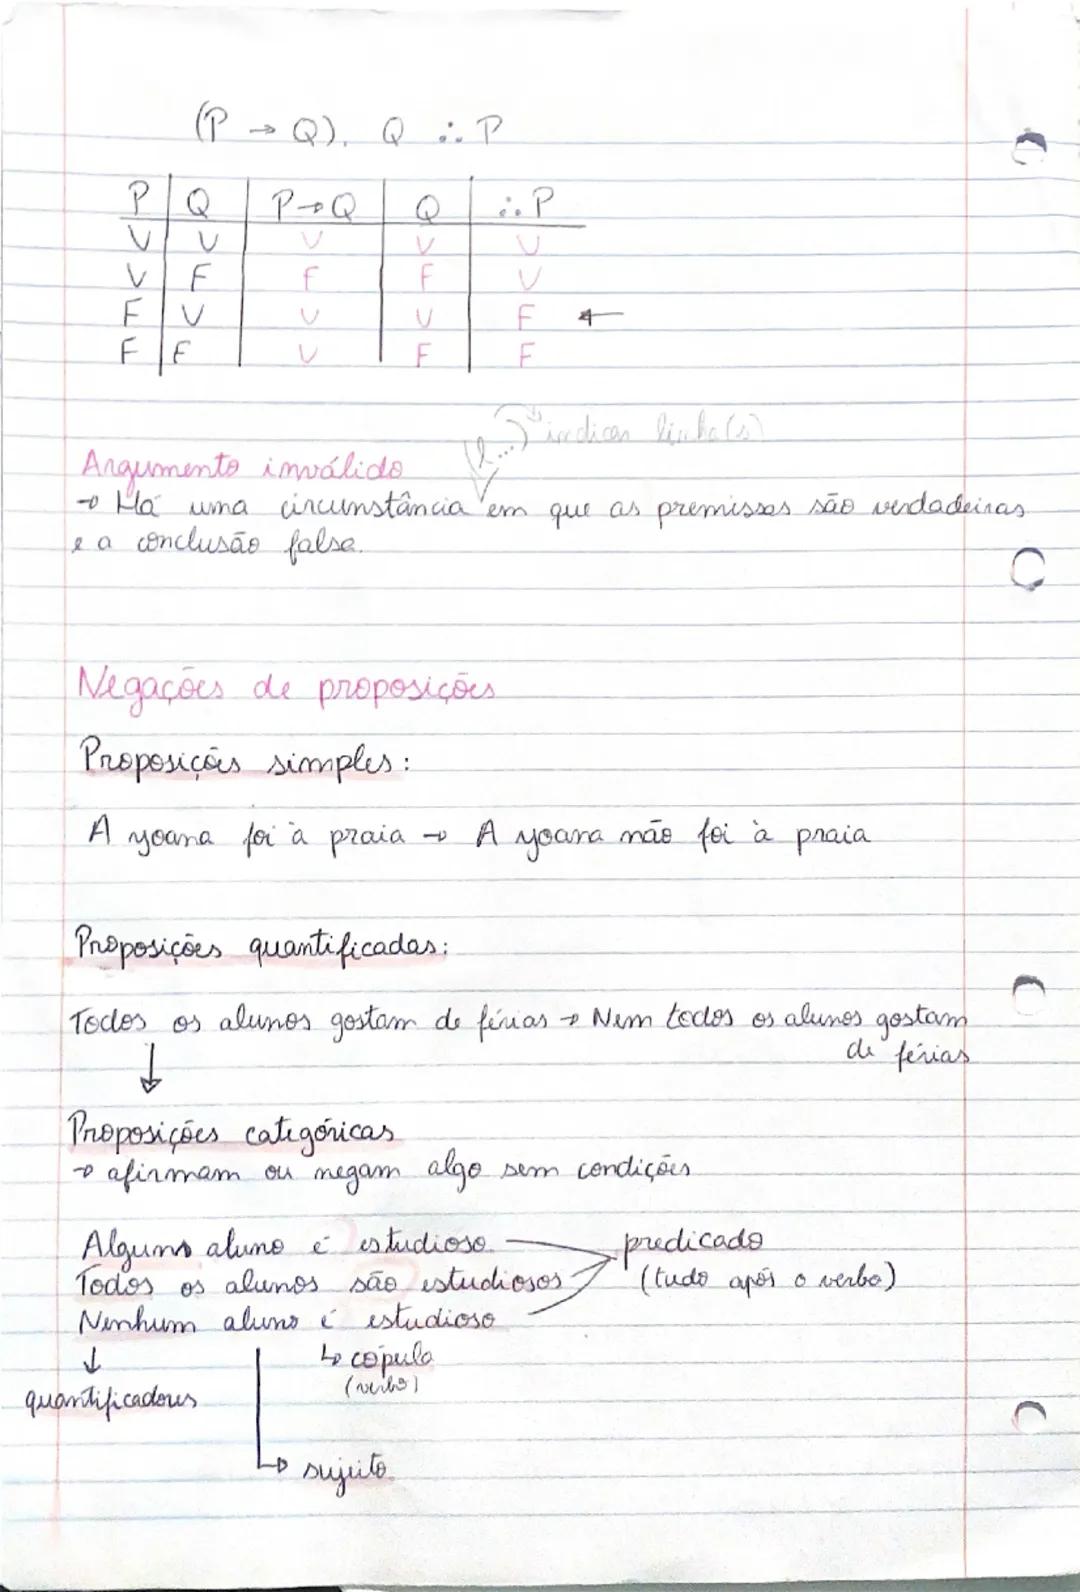 (P → Q), Q ∴ P
P Q P→Q Q ∴ P
V V V V V
V F F F V
F V V V F ←
F F V F F
(l...) indicar linha(s)
Argumento inválido
→ Há uma circunstância em que as premissas são verdadeiras
e a conclusão falsa.
Negações de proposições
Proposições simples:
A yoana foi à praia → A yoana não foi à praia
Proposições quantificadas:
Todos os alunos gostam de férias → Nem todos os alunos gostam
de férias
↓
Proposições categóricas
→ afirmam ou negam algo sem condições
Algum aluno é estudioso predicado
Todos os alunos são estudiosos (tudo após o verbo)
Nenhum aluno é estudioso
↓ ↳ copula
quantificadores (verbo)
↳ sujeito